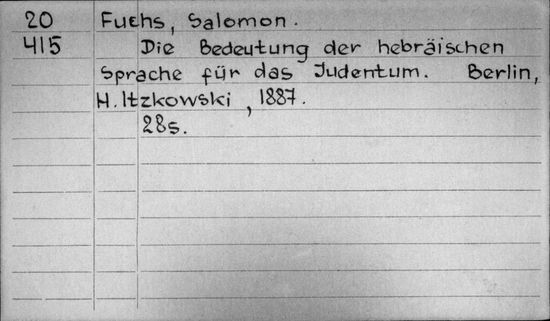 20 Fuchs, Salomon.
415 Die Bedeutung der hebräischen
Sprache für das Judentum. Berlin,
H. Itzkowski, 1887.
28s.